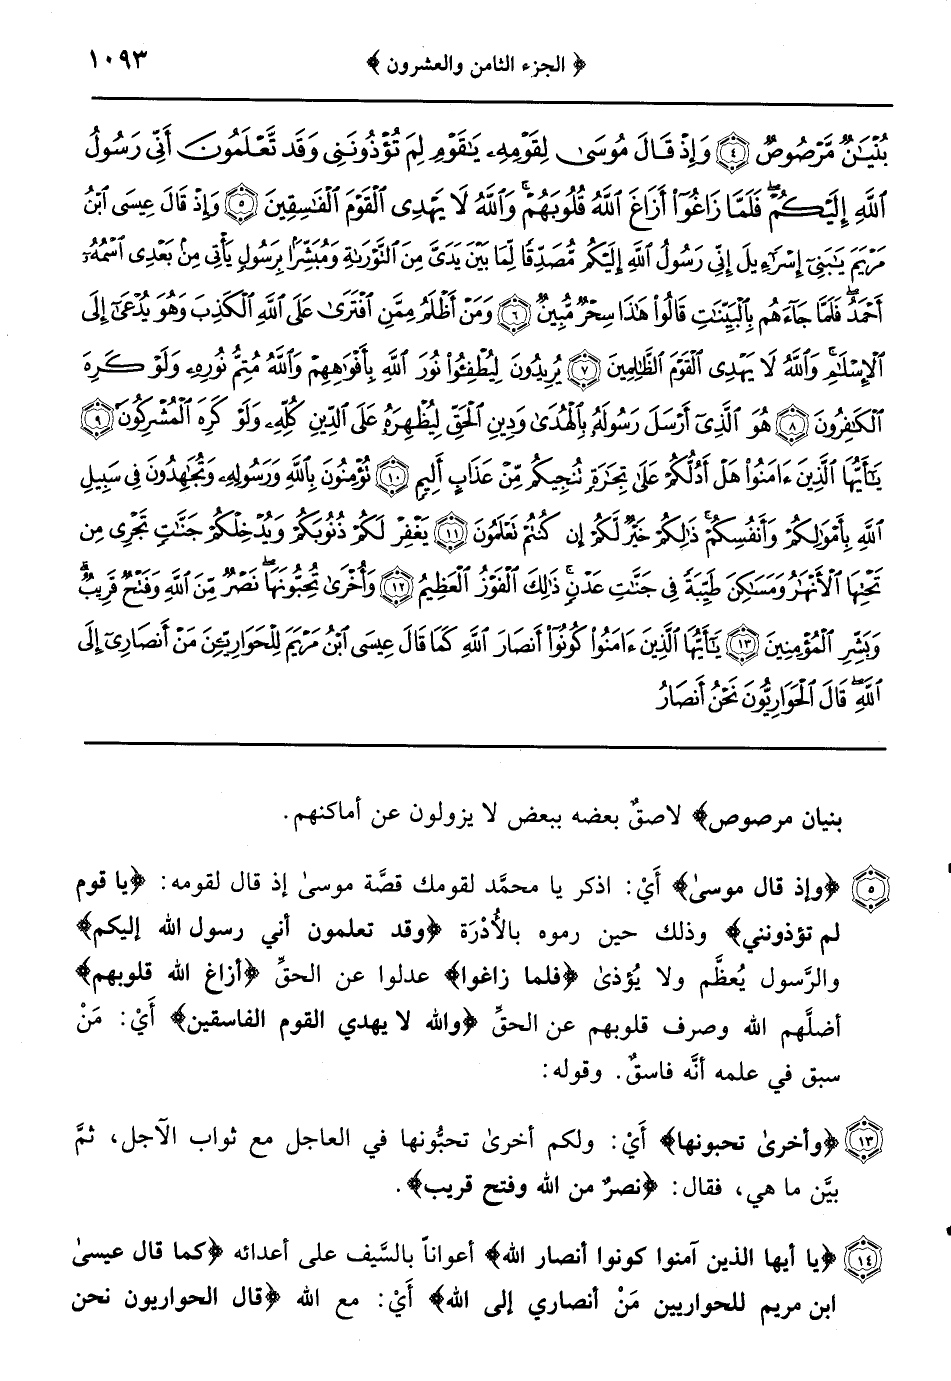 ﴿ الجزء الثامن والعشرون ﴾ ١٠٩٣
بُنْيَٰنٌ مَّرْصُوصٌ ٤ وَإِذْ قَالَ مُوسَىٰ لِقَوْمِهِۦ يَٰقَوْمِ لِمَ تُؤْذُونَنِى وَقَد تَّعْلَمُونَ أَنِّى رَسُولُ
ٱللَّهِ إِلَيْكُمْ ۖ فَلَمَّا زَاغُوٓا۟ أَزَاغَ ٱللَّهُ قُلُوبَهُمْ ۚ وَٱللَّهُ لَا يَهْدِى ٱلْقَوْمَ ٱلْفَٰسِقِينَ ٥ وَإِذْ قَالَ عِيسَى ٱبْنُ
مَرْيَمَ يَٰبَنِىٓ إِسْرَٰٓءِيلَ إِنِّى رَسُولُ ٱللَّهِ إِلَيْكُم مُّصَدِّقًا لِّمَا بَيْنَ يَدَىَّ مِنَ ٱلتَّوْرَىٰةِ وَمُبَشِّرًۢا بِرَسُولٍ يَأْتِى مِنۢ بَعْدِى ٱسْمُهُۥٓ
أَحْمَدُ ۖ فَلَمَّا جَآءَهُم بِٱلْبَيِّنَٰتِ قَالُوا۟ هَٰذَا سِحْرٌ مُّبِينٌ ٦ وَمَنْ أَظْلَمُ مِمَّنِ ٱفْتَرَىٰ عَلَى ٱللَّهِ ٱلْكَذِبَ وَهُوَ يُدْعَىٰٓ إِلَى
ٱلْإِسْلَٰمِ ۚ وَٱللَّهُ لَا يَهْدِى ٱلْقَوْمَ ٱلظَّٰلِمِينَ ٧ يُرِيدُونَ لِيُطْفِـُٔوا۟ نُورَ ٱللَّهِ بِأَفْوَٰهِهِمْ وَٱللَّهُ مُتِمُّ نُورِهِۦ وَلَوْ كَرِهَ
ٱلْكَٰفِرُونَ ٨ هُوَ ٱلَّذِىٓ أَرْسَلَ رَسُولَهُۥ بِٱلْهُدَىٰ وَدِينِ ٱلْحَقِّ لِيُظْهِرَهُۥ عَلَى ٱلدِّينِ كُلِّهِۦ وَلَوْ كَرِهَ ٱلْمُشْرِكُونَ ٩
يَٰٓأَيُّهَا ٱلَّذِينَ ءَامَنُوا۟ هَلْ أَدُلُّكُمْ عَلَىٰ تِجَٰرَةٍ تُنجِيكُم مِّنْ عَذَابٍ أَلِيمٍ ١٠ تُؤْمِنُونَ بِٱللَّهِ وَرَسُولِهِۦ وَتُجَٰهِدُونَ فِى سَبِيلِ
ٱللَّهِ بِأَمْوَٰلِكُمْ وَأَنفُسِكُمْ ۚ ذَٰلِكُمْ خَيْرٌ لَّكُمْ إِن كُنتُمْ تَعْلَمُونَ ١١ يَغْفِرْ لَكُمْ ذُنُوبَكُمْ وَيُدْخِلْكُمْ جَنَّٰتٍ تَجْرِى مِن
تَحْتِهَا ٱلْأَنْهَٰرُ وَمَسَٰكِنَ طَيِّبَةً فِى جَنَّٰتِ عَدْنٍ ۚ ذَٰلِكَ ٱلْفَوْزُ ٱلْعَظِيمُ ١٢ وَأُخْرَىٰ تُحِبُّونَهَا ۖ نَصْرٌ مِّنَ ٱللَّهِ وَفَتْحٌ قَرِيبٌ ۗ
وَبَشِّرِ ٱلْمُؤْمِنِينَ ١٣ يَٰٓأَيُّهَا ٱلَّذِينَ ءَامَنُوا۟ كُونُوٓا۟ أَنصَارَ ٱللَّهِ كَمَا قَالَ عِيسَى ٱبْنُ مَرْيَمَ لِلْحَوَارِيِّـۧنَ مَنْ أَنصَارِىٓ إِلَى
ٱللَّهِ ۖ قَالَ ٱلْحَوَارِيُّونَ نَحْنُ أَنصَارُ
بنيان مرصوص﴾ لاصقٌ بعضه ببعض لا يزولون عن أماكنهم.
٥ ﴿وإذ قال موسىٰ﴾ أَيْ: اذكر يا محمَّد لقومك قصَّة موسىٰ إذ قال لقومه: ﴿يا قوم
لم تؤذونني﴾ وذلك حين رموه بالأُدْرَة ﴿وقد تعلمون أني رسول الله إليكم﴾
والرَّسول يُعظَّم ولا يُؤذىٰ ﴿فلما زاغوا﴾ عدلوا عن الحقِّ ﴿أزاغ الله قلوبهم﴾
أضلَّهم الله وصرف قلوبهم عن الحقِّ ﴿والله لا يهدي القوم الفاسقين﴾ أَيْ: مَنْ
سبق في علمه أنَّه فاسقٌ. وقوله:
١٣ ﴿وأخرىٰ تحبونها﴾ أَيْ: ولكم أخرىٰ تحبُّونها في العاجل مع ثواب الآجل، ثمَّ
بيَّن ما هي، فقال: ﴿نصرٌ من الله وفتح قريب﴾.
١٤ ﴿يا أيها الذين آمنوا كونوا أنصار الله﴾ أعواناً بالسَّيف على أعدائه ﴿كما قال عيسىٰ
ابن مريم للحواريين مَنْ أنصاري إلى الله﴾ أَيْ: مع الله ﴿قال الحواريون نحن